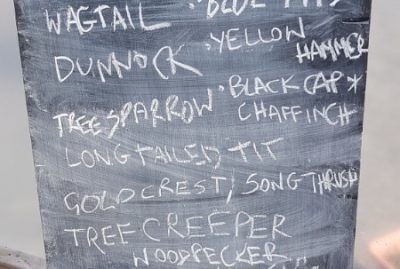 WAGTAIL · BLUE TITS
DUNNOCK · YELLOW HAMMER
TREE SPARROW · BLACK CAP *
CHAFFINCH
LONG TAILED TIT
GOLDCREST / SONG THRUSH
TREE CREEPER
WOODPECKER